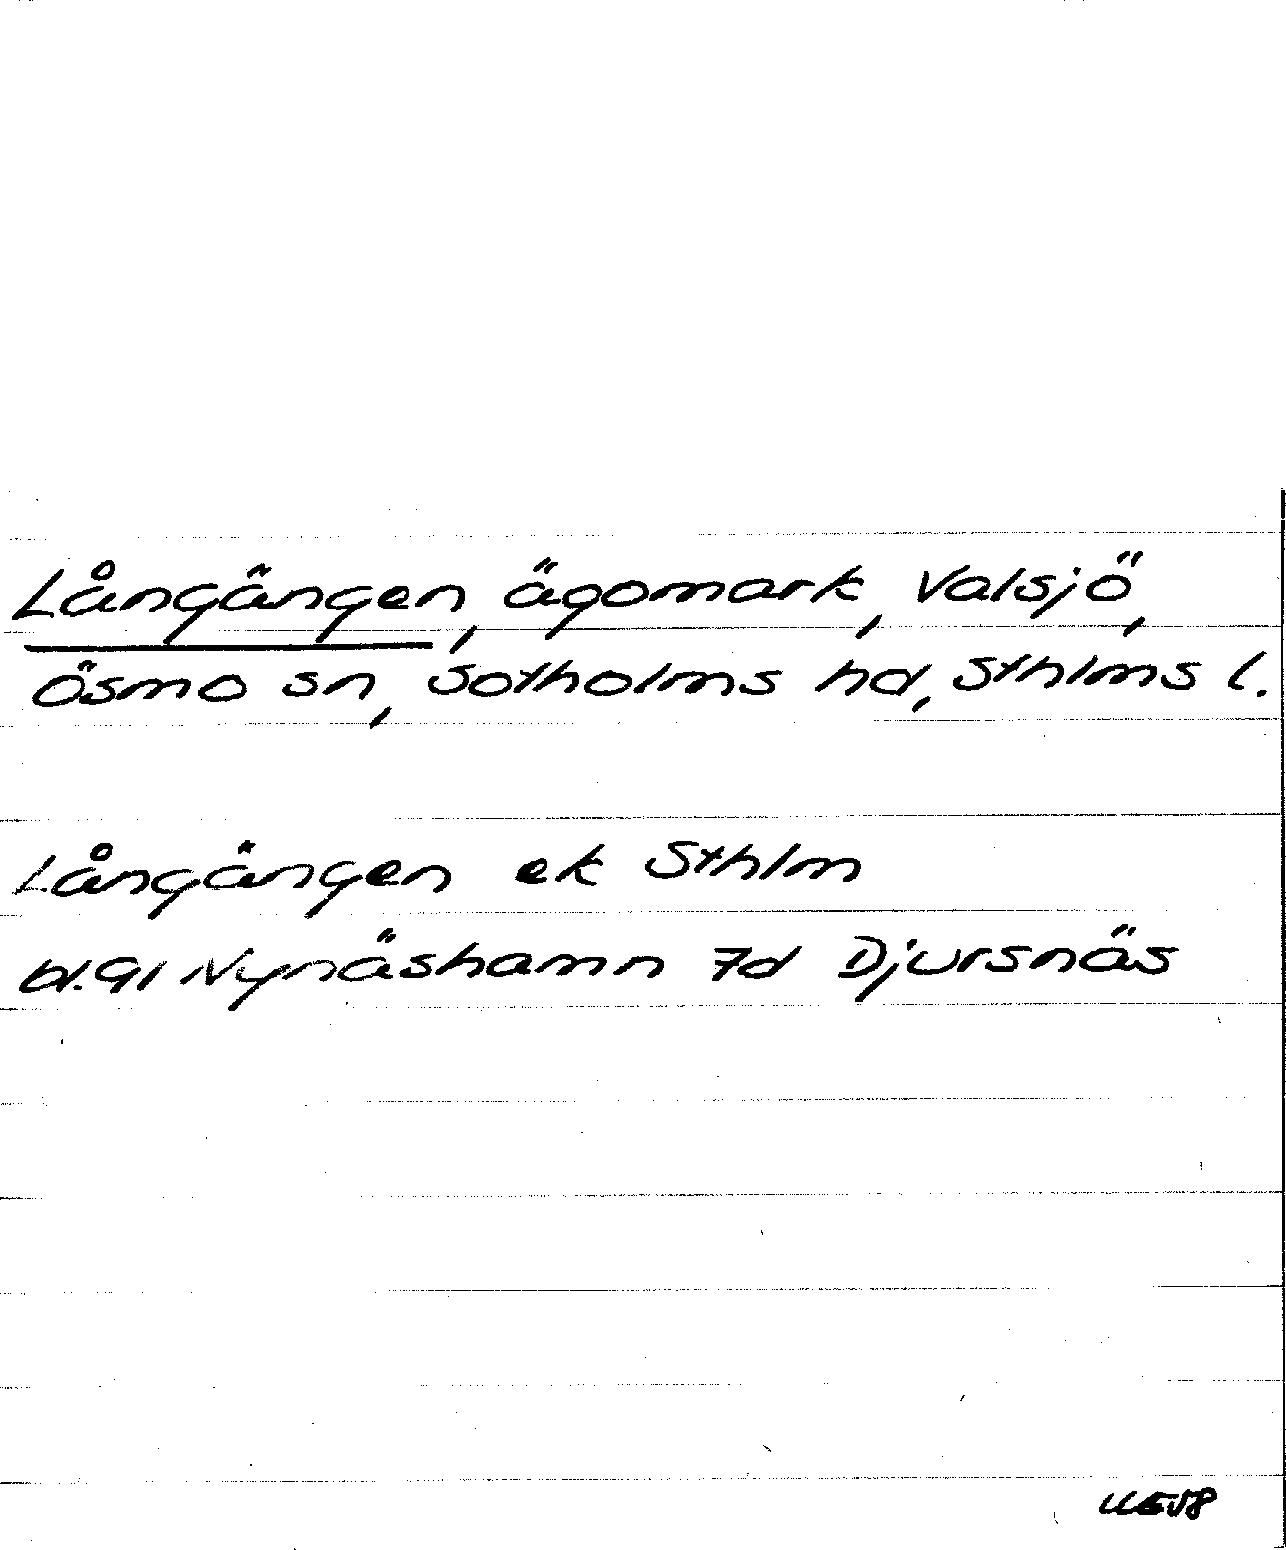 Långängen, ägomark, Valsjö,
Ösmo sn, Sotholms hd, Sthlms l.
Långängen ek Sthlm
bl. 91 Nynäshamn 7d Djursnäs